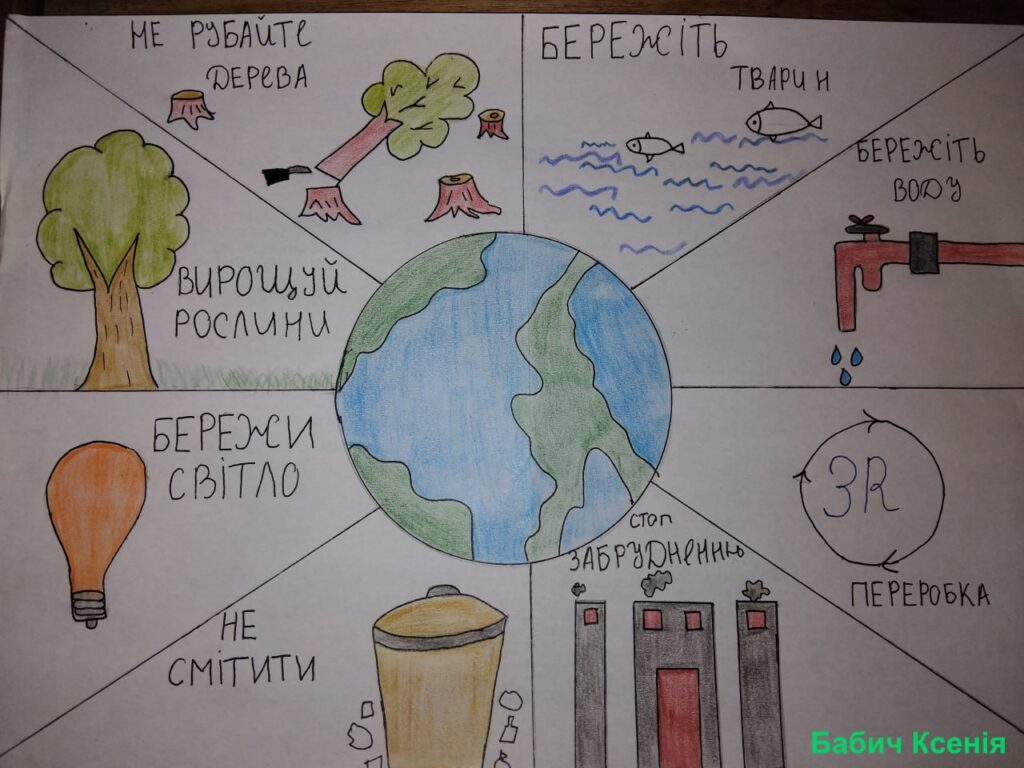 НЕ РУБАЙТЕ
ДЕРЕВА
БЕРЕЖІТЬ
ТВАРИН
БЕРЕЖІТЬ
ВОДУ
ВИРОЩУЙ
РОСЛИНИ
БЕРЕЖИ
СВІТЛО
3R
ПЕРЕРОБКА
СТОП
ЗАБРУДНЕННЮ
НЕ
СМІТИТИ
Бабич Ксенія